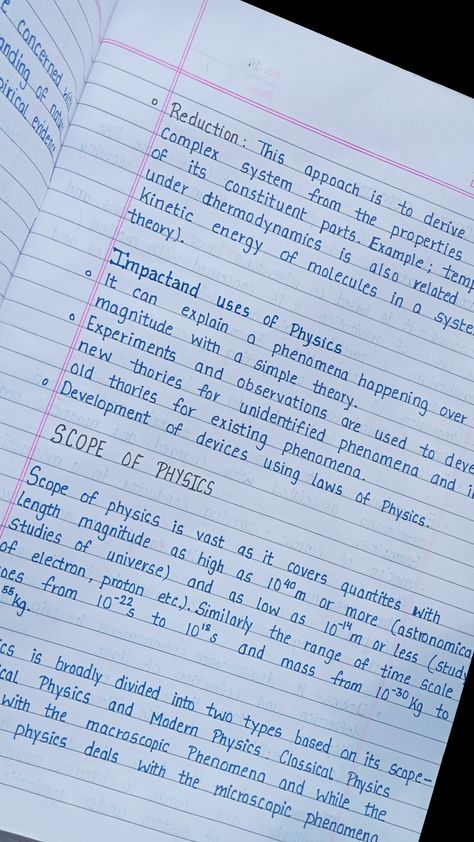 e concerned with
anding of natu
pirical evidence
No. 14
Date: / /
o Reduction: This appoach is to derive
complex system from the properties
of its constituent parts. Example; temp
under dhermodynamics is also related
kinetic energy of molecules in a system
theory).
Impactand uses of Physics
o It can explain a phenomena happening over
magnitude with a simple theory.
o Experiments and observations are used to deve
new thories for unidentified phenomena and i
old thories for existing phenomena.
o Development of devices using laws of Physics.
SCOPE OF PHYSICS
Scope of physics is vast as it covers quantites with
length magnitude as high as 10⁴⁰m or more (astronomica
studies of universe) and as low as 10⁻¹⁴m or less (study
of electron, proton etc.). Similarly the range of time scale
oes from 10⁻²²s to 10¹⁸s and mass from 10⁻³⁰kg to
⁵⁵kg.
ics is broadly divided into two types based on its scope-
ical Physics and Modern Physics. Classical Physics
with the macroscopic Phenomena and while the
physics deals with the microscopic phenomena